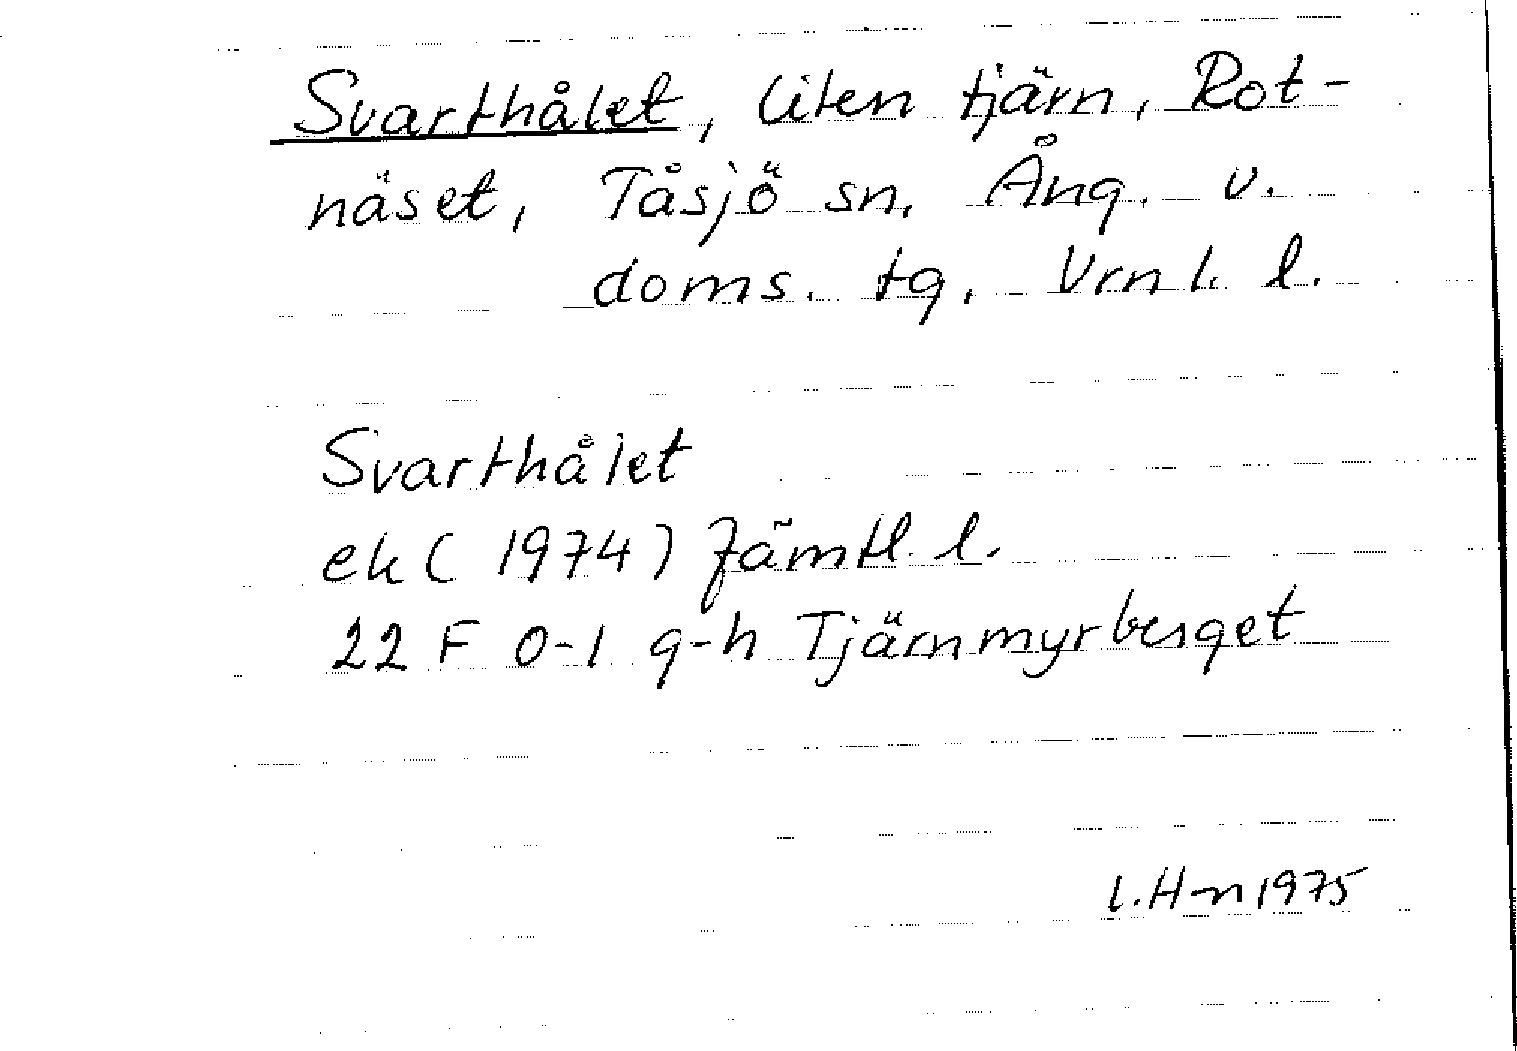 Svarthålet, liten tjärn, Rot-
näset, Tåsjö sn, Ång. v.
doms. tg, Vrnl. l.
Svarthålet
ek (1974) Jämtl. l.
22 F 0-1 g-h Tjärnmyrberget
l. H-n 1975